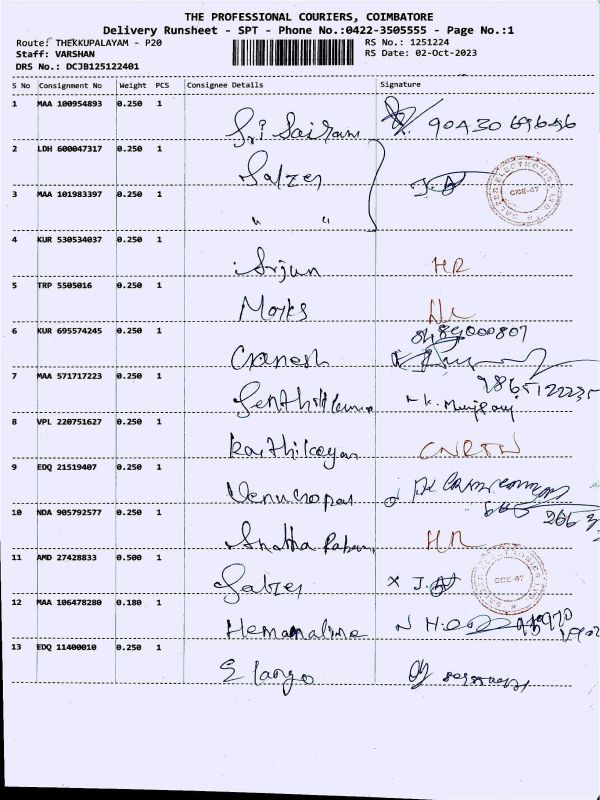 THE PROFESSIONAL COURIERS, COIMBATORE
Delivery Runsheet - SPT - Phone No.:0422-3505555 - Page No.:1
Route: THEKKUPALAYAM - P20 RS No.: 1251224
Staff: VARSHAN RS Date: 02-Oct-2023
DRS No.: DCJB125122401
S No Consignment No Weight PCS Consignee Details Signature
1 MAA 100954893 0.250 1 Sri Sairam
2 LDH 600047317 0.250 1 Salzer J.A
3 MAA 101983397 0.250 1 " "
SALZER ELECTRONICS CBE-47
4 KUR 530534037 0.250 1 Arjun HR
5 TRP 5505016 0.250 1 Marks
6 KUR 695574245 0.250 1 Ganesh
7 MAA 571717223 0.250 1 Senthilkumar
8 VPL 220751627 0.250 1 Karthikeyan
9 EDQ 21519407 0.250 1 Venugopal
10 NDA 905792577 0.250 1 HR
11 AMD 27428833 0.500 1 Salzer X J.A
CBE-47
12 MAA 106478280 0.180 1 Hemamaline
13 EDQ 11400010 0.250 1 Elango